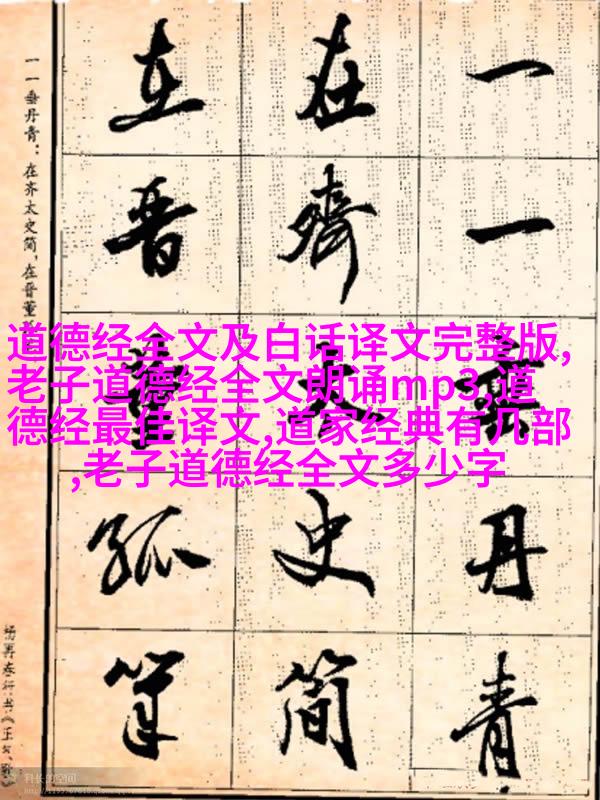 一一垂丹青
在齊太史简
在晋董孤筆
一一垂丹青：在齐太史简，在晋董
杨再春行书《正气歌》
道德经全文及白话译文完整版,
老子道德经全文朗诵mp3,道
德经最佳译文,道家经典有几部
,老子道德经全文多少字
科长的空间